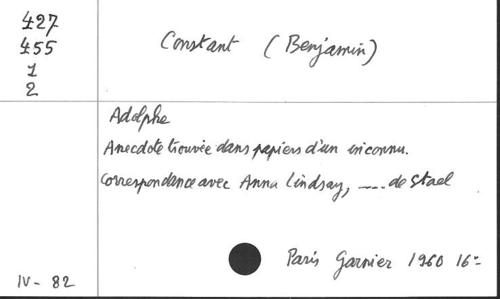 427
455
1
2
Constant (Benjamin)
Adolphe
Anecdote trouvée dans papiers d'un inconnu.
Correspondance avec Anna Lindsay, .... de Stael
Paris Garnier 1960 16°
IV - 82